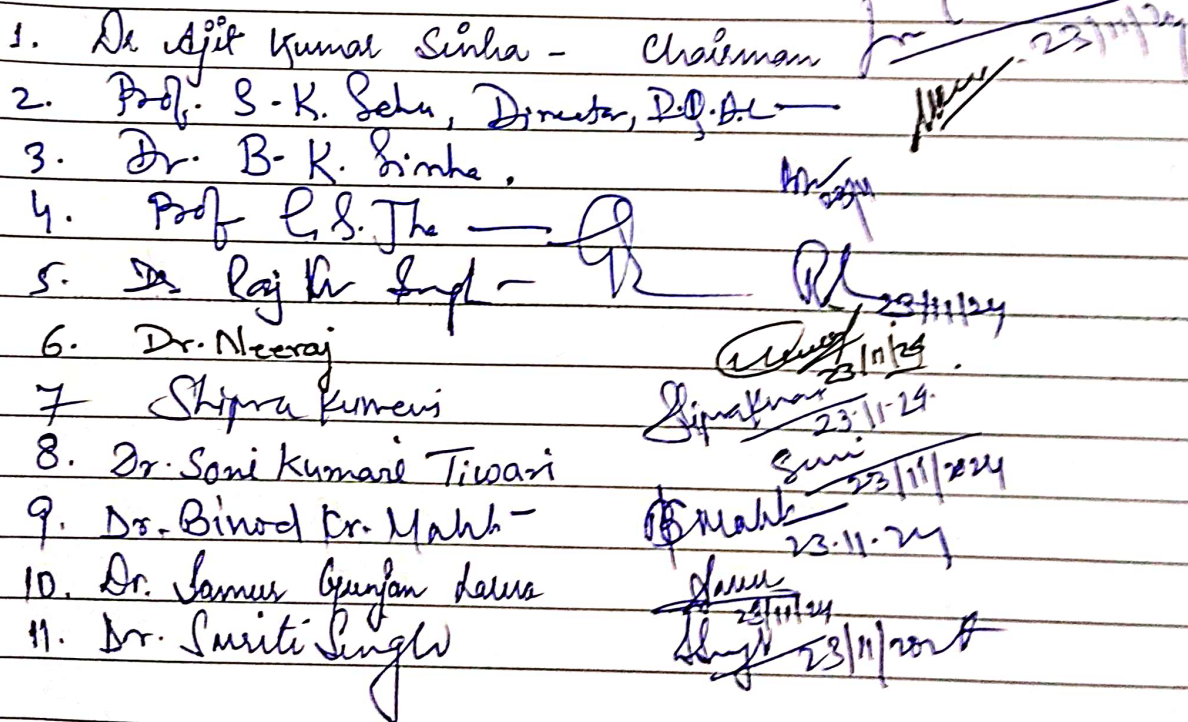 1. Dr Ajit Kumar Sinha - Chairman 23/11/24
2. Prof. S-K. Sahu, Director,
3. Dr. B-K. Sinha.
4. Prof G.S. Jha
5. Dr Raj Kr Singh - 23/11/24
6. Dr. Neeraj 23/11/24.
7 Shipra Kumari 23.11.24.
8. Dr. Soni Kumari Tiwari Soni 23/11/2024
9. Dr. Binod Kr. Mahto 23.11.24
10. Dr. Gunjan 23/11/24
11. Dr. Smriti Singh 23/11/2024